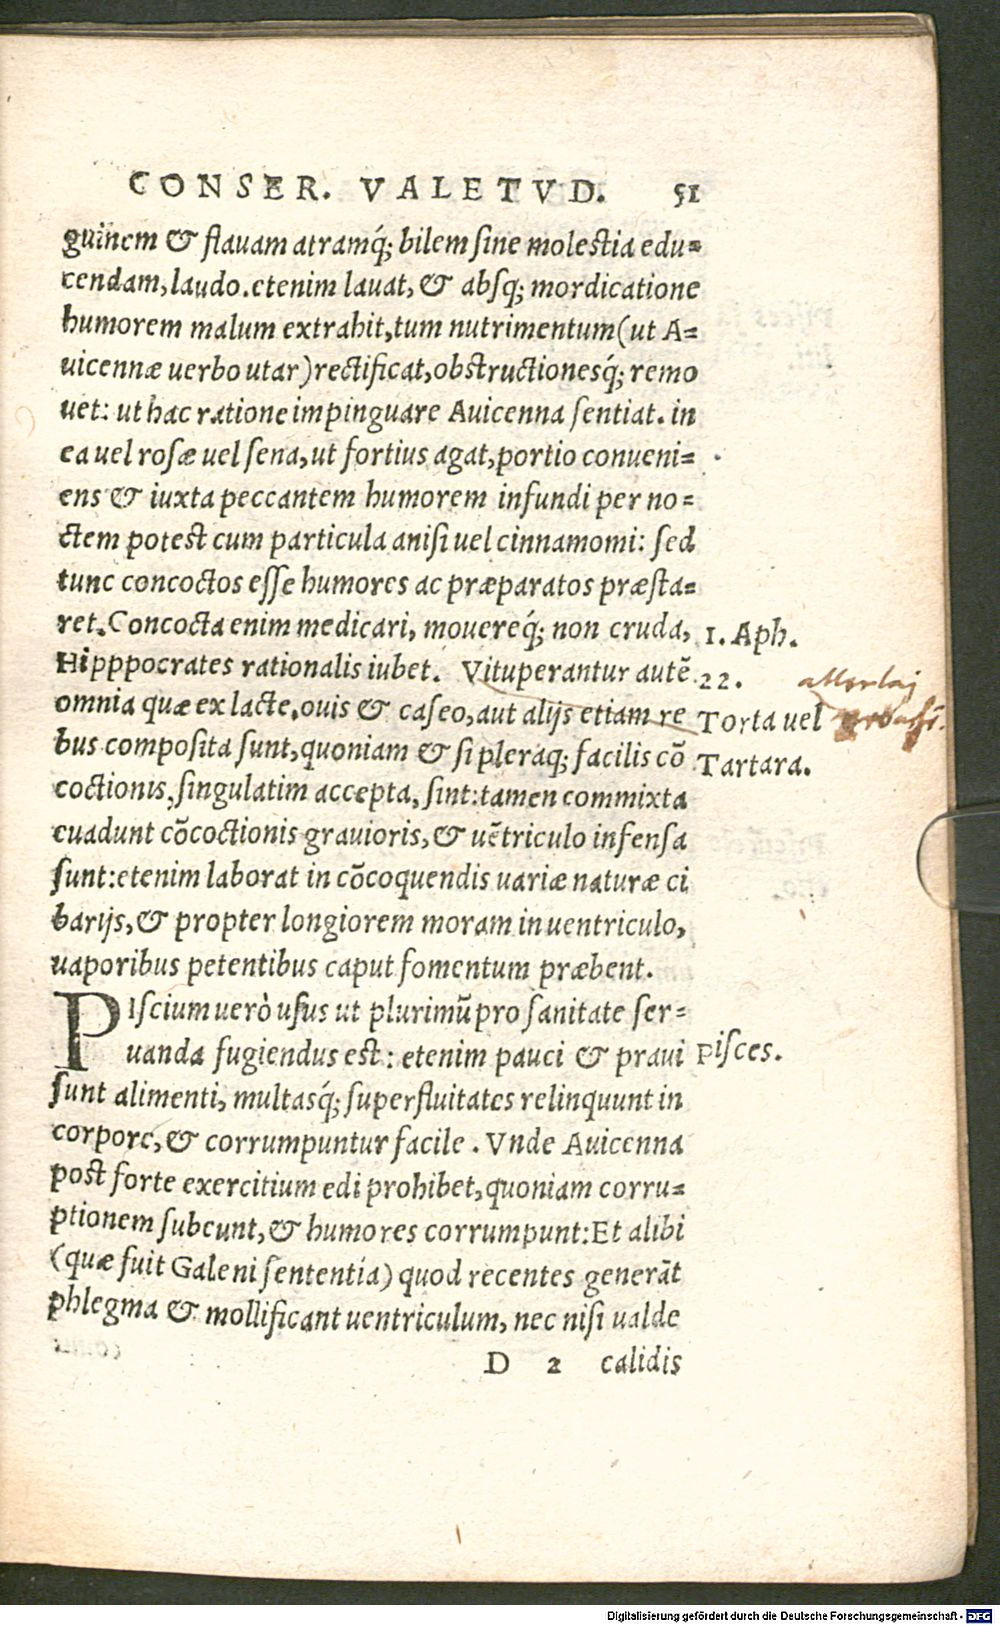 CONSER. VALETVD. 51
guinem & flauam atramq́; bilem sine molestia edu=
cendam, laudo. etenim lauat, & absq; mordicatione
humorem malum extrahit, tum nutrimentum (ut A=
uicennæ uerbo utar) rectificat, obstructionesq́; remo
uet: ut hac ratione impinguare Auicenna sentiat. in
ea uel rosæ uel sena, ut fortius agat, portio conueni=
ens & iuxta peccantem humorem infundi per no=
ctem potest cum particula anisi uel cinnamomi: sed
tunc concoctos esse humores ac præparatos præsta=
ret. Concocta enim medicari, mouereq́; non cruda,
1. Aph.
Hipppocrates rationalis iubet. Vituperantur autē
22.
omnia quæ ex lacte, ouis & caseo, aut alijs etiam re
Torta uel
bus composita sunt, quoniam & si pleraq; facilis cō
Tartara.
coctionis, singulatim accepta, sint: tamen commixta
euadunt cōcoctionis grauioris, & uētriculo infensa
sunt: etenim laborat in cōcoquendis uariæ naturæ ci
barijs, & propter longiorem moram in uentriculo,
uaporibus petentibus caput fomentum præbent.
PIscium uerò usus ut plurimū pro sanitate ser=
uanda fugiendus est: etenim pauci & praui
Pisces.
sunt alimenti, multasq́; superfluitates relinquunt in
corpore, & corrumpuntur facile. Vnde Auicenna
post forte exercitium edi prohibet, quoniam corru=
ptionem subeunt, & humores corrumpunt: Et alibi
(quæ fuit Galeni sententia) quod recentes generāt
phlegma & mollificant uentriculum, nec nisi ualde
D 2 calidis
Digitalisierung gefördert durch die Deutsche Forschungsgemeinschaft - DFG